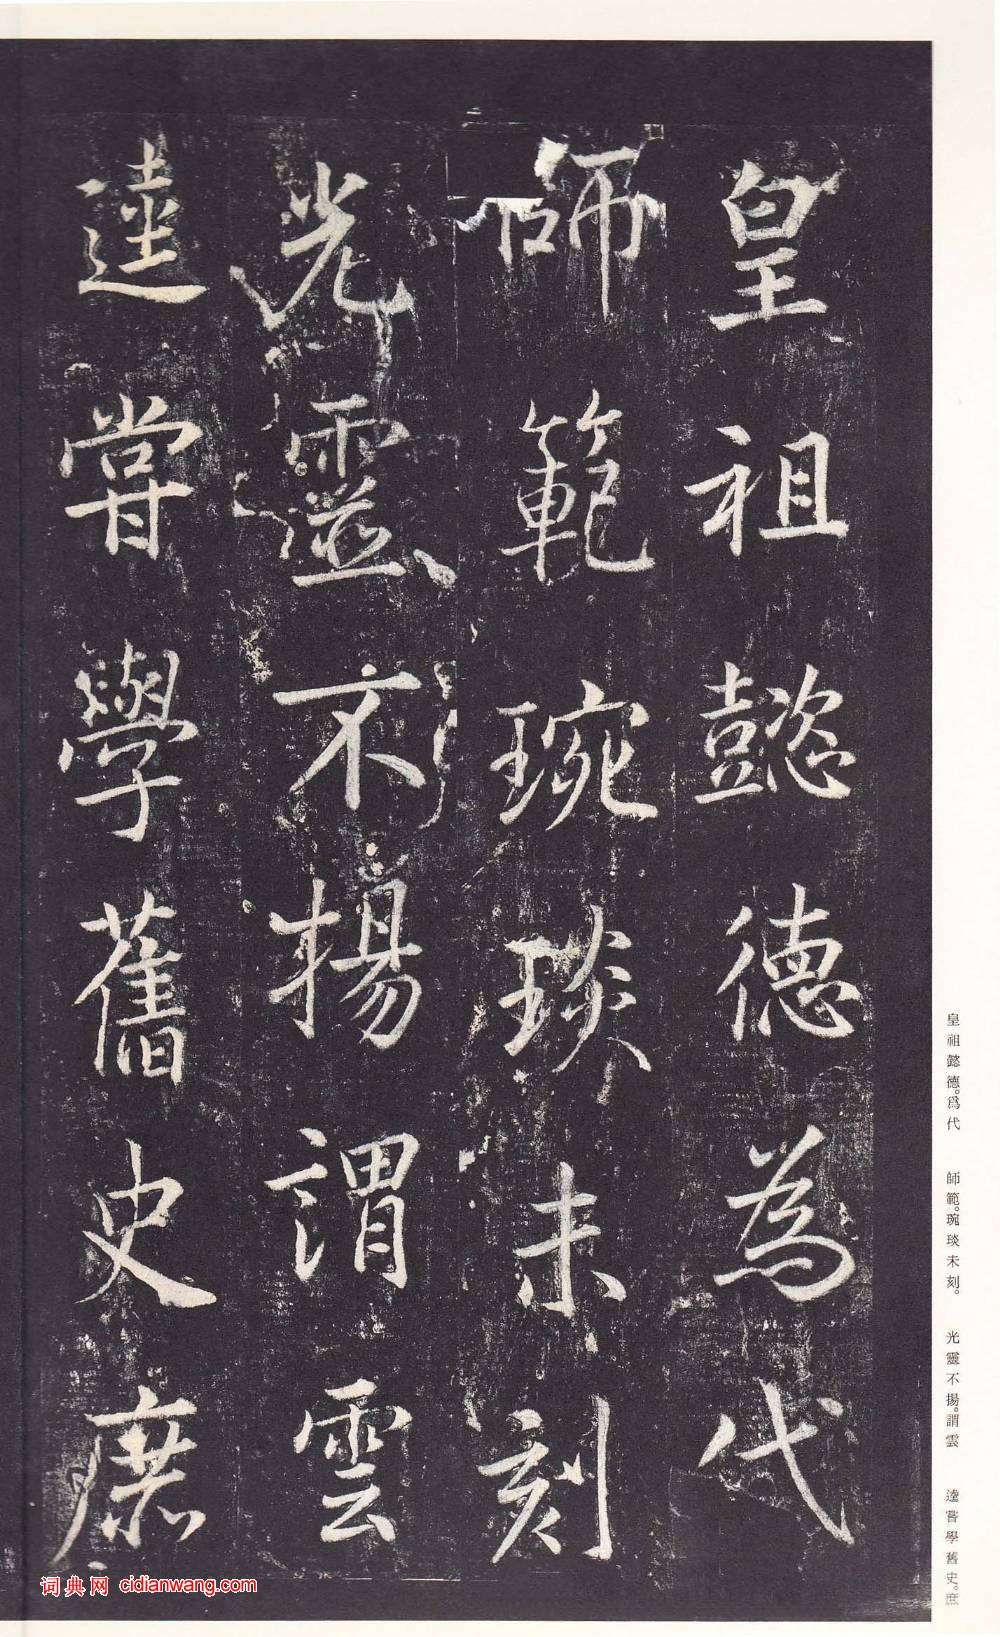 皇祖懿德為代
師範琬琰未刻
光靈不揚謂雲
逵嘗學舊史庶
皇祖懿德。爲代
師範。琬琰未刻。
光靈不揚。謂雲
逵嘗學舊史。庶
词典网 cidianwang.com